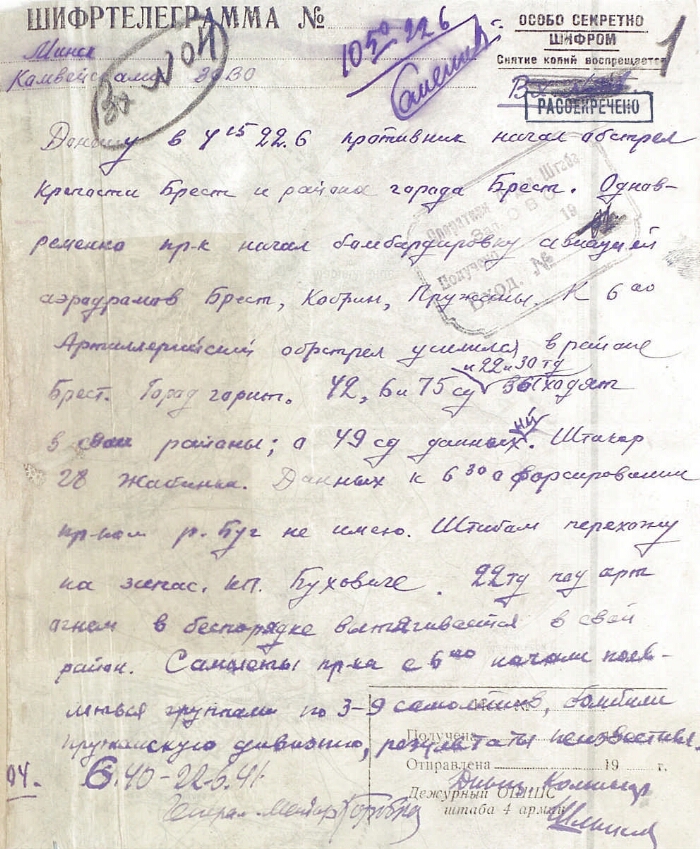 ШИФРТЕЛЕГРАММА №
ОСОБО СЕКРЕТНО
ШИФРОМ
Снятие копий воспрещается
1
Минск
Камвойсками 3030
Вх N 04
10 50 22 6
РАССЕКРЕЧЕНО
Доношу в 4 15 22.6 противник начал обстрел
Крепости Брест и района города Брест. Однов-
ременно пр-к начал бомбардировку авиацией
аэродромов Брест, Кобрин, Пружаны. К 6 00
Артиллерийский обстрел усилился в районе
и 22 и 30 тд
Брест. Город горит. 42, 6 и 75 сд выходят
в свои районы; о 49 сд данных нет. Штакор
28 Жабинка. Данных к 6 30 о форсировании
пр-ком р. Буг не имею. Штабом перехожу
на запас. кп. Буховиче. 22 тд под арт
огнем в беспорядке вытягивается в свой
район. Самолеты пр-ка с 6 00 начали появ-
ляться группами по 3-9 самолетов, бомбили
пружанскую дивизию, результаты неизвестны.
Оперативн Штаба
ЗАПОВО
Получено 19
Вход. №
Получена
Отправлена 19 г.
Дежурный
штаба 4 армии
Див. Комиссар
04. 6.40-22.6.41.
Генерал-майор